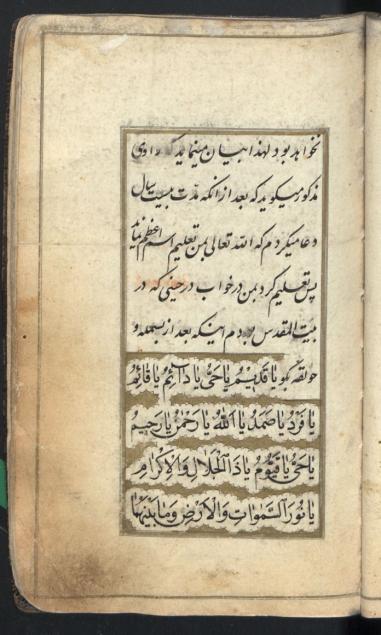 نخواهد بود لهذا بیان مینماید که راوی
مذکور میکوید که بعد از انکه مدت بیست سال
دعا میکردم که الله تعالی بمن تعلیم اسم اعظم نماید
پس تعلیم کرد بمن در خواب در حینی که در
بیت المقدس بودم اینکه بعد از بسمله و
حوقله بکو یا قدیم یا حی یا دائم یا قائم
یا فرد یا صمد یا الله یا رحمن یا رحیم
یا حی یا قیوم یا ذا الجلال والاکرام
یا نور السموات والارض وما بینهما